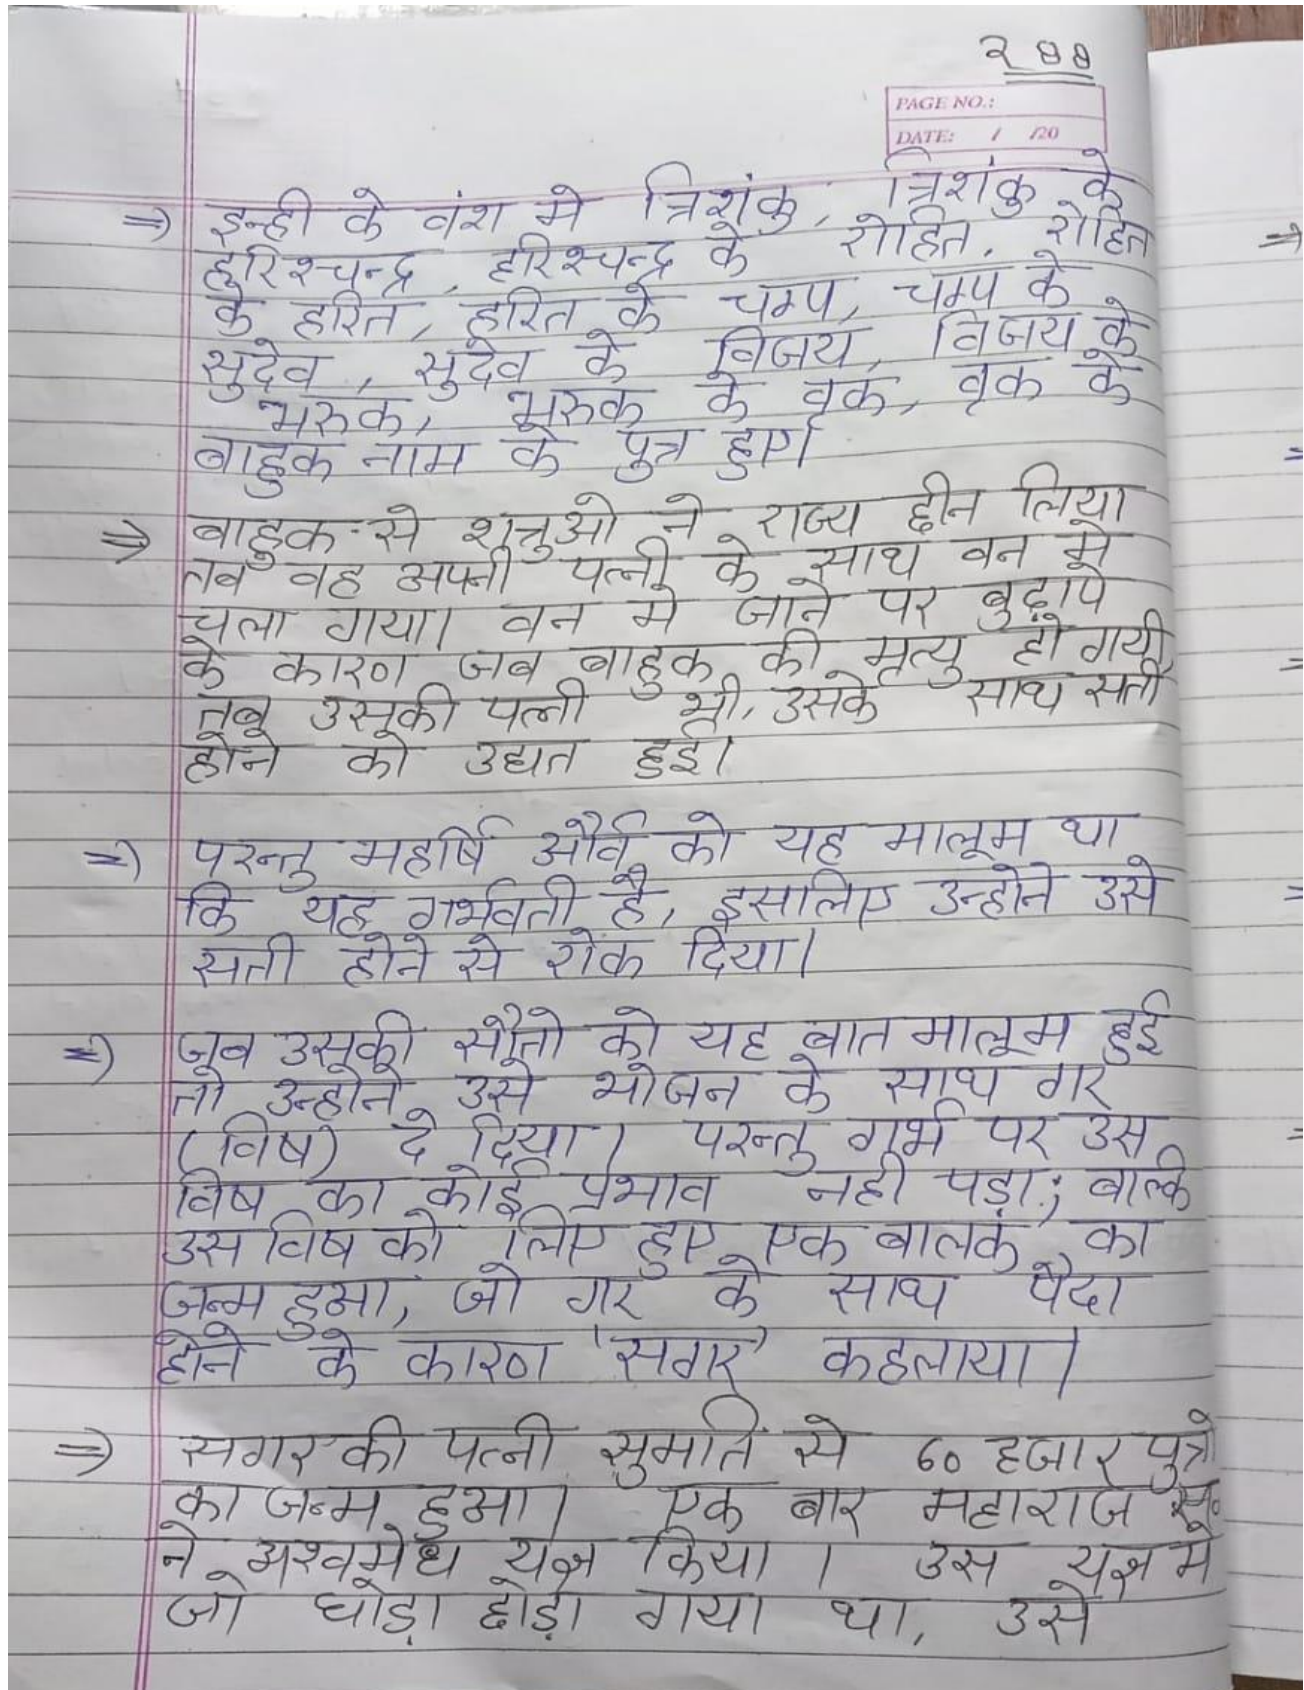 २४४
PAGE NO.:
DATE: / /20
⇒ इन्ही के वंश मे त्रिशंकु, त्रिशंकु के
हरिश्चन्द्र, हरिश्चन्द्र के रोहित, रोहित
के हरित, हरित के चम्प, चम्प के
सुदेव, सुदेव के विजय, विजय के
भरुक, भरुक के वृक, वृक के
बाहुक नाम के पुत्र हुए।
⇒ बाहुक से शत्रुओ ने राज्य छीन लिया
तब वह अपनी पत्नी के साथ वन मे
चला गया। वन मे जाने पर बुढ़ापे
के कारण जब बाहुक की मृत्यु हो गयी,
तब उसकी पत्नी भी, उसके साथ सती
होने को उद्यत हुई।
⇒ परन्तु महर्षि और्व को यह मालूम था
कि यह गर्भवती है, इसलिए उन्होने उसे
सती होने से रोक दिया।
⇒ जब उसकी सौतो को यह बात मालूम हुई
तो उन्होने उसे भोजन के साथ गर
(विष) दे दिया। परन्तु गर्भ पर उस
विष का कोई प्रभाव नही पड़ा; बल्कि
उस विष को लिए हुए एक बालक का
जन्म हुआ, जो गर के साथ पैदा
होने के कारण 'सगर' कहलाया।
⇒ सगर की पत्नी सुमति से 60 हजार पुत्रो
का जन्म हुआ। एक बार महाराज
ने अश्वमेध यज्ञ किया। उस यज्ञ मे
जो घोड़ा छोड़ा गया था, उसे